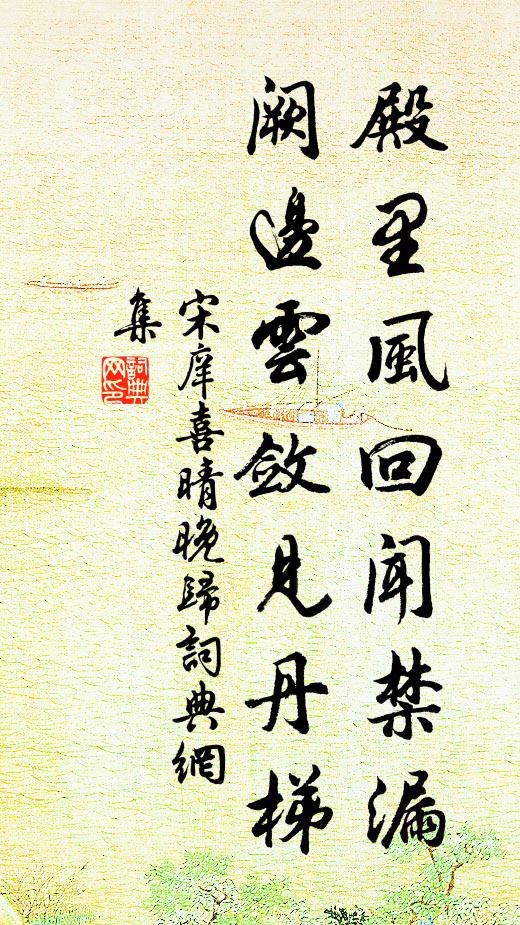 殿里風回聞禁漏
闕邊雲斂見丹梯
宋庠喜晴晚歸詞典網
集
詞典
网印